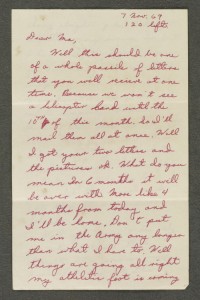 7 Nov. 69
120 left
Dear Ma,
Well this should be one
of a whole passile of letters
that you will recive at one
time. Because we won't see
a helicopter land until the
10th of this month. So I'll
mail them all at once. Well
I got your two letters and
the pictures ok. What do you
mean in 6 months it will
be over with. More like 4
months from today and
I'll be home. Don't put
me in the Army any longer
than what I have to. Well
things are going all right
my athletic foot is coming